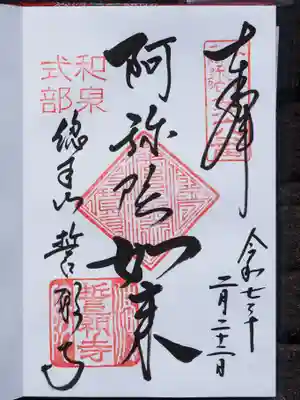 奉拝
令和七年
二月二十二日
阿弥陀如来
和泉
式部
總本山 誓願寺
誓願寺